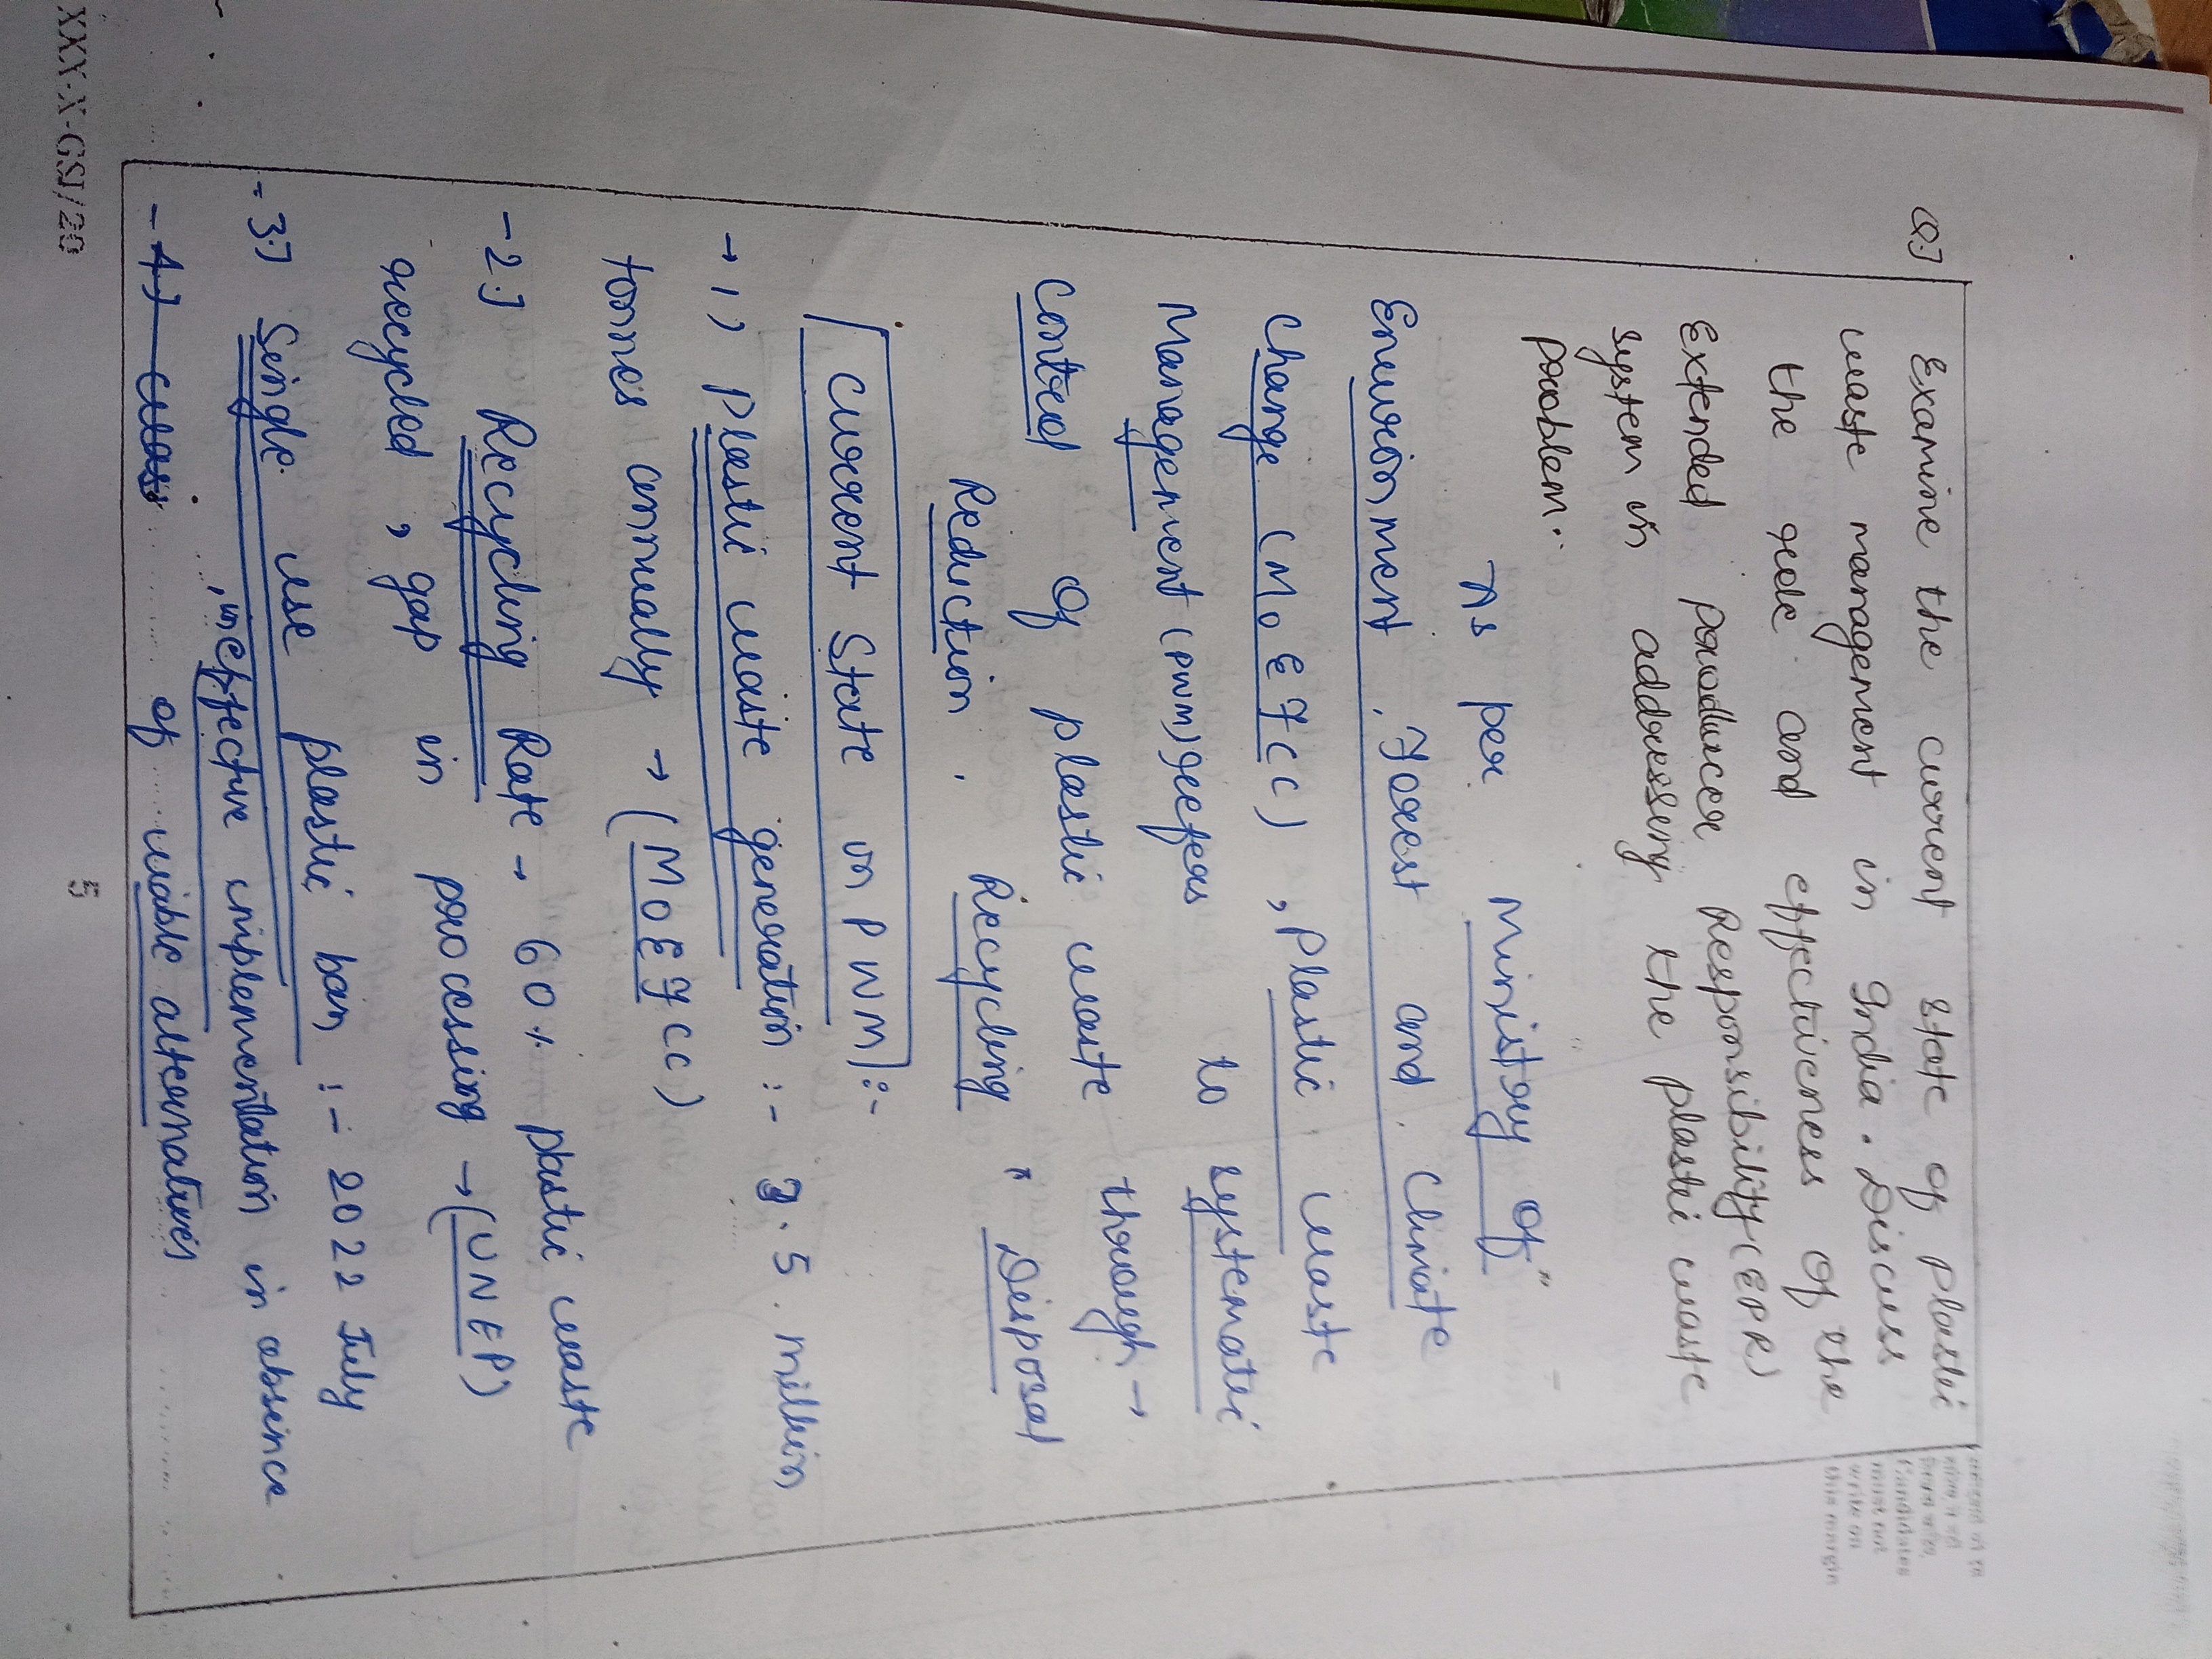 Q.] Examine the current state of plastic
waste management in India. Discuss
the role and effectiveness of the
Extended producer Responsibility (EPR)
system in addressing the plastic waste
problem.
As per Ministry of
Environment, Forest and Climate
Change (MoEFCC), Plastic waste
Management (PWM) refers to systematic
control of plastic waste through →
Reduction, Recycling, Disposal
Current State in PWM :-
→ 1) Plastic waste generation :- .5 million
tonnes annually → (MOEFCC)
- 2.] Recycling Rate → 60% plastic waste
recycled, gap in processing → (UNEP)
- 3.] Single use plastic ban :- 2022 July
ineffective implementation in absence
- 4.] of viable alternatives
Candidates
must not
write on
this margin
XXX-X-GSI/20
5